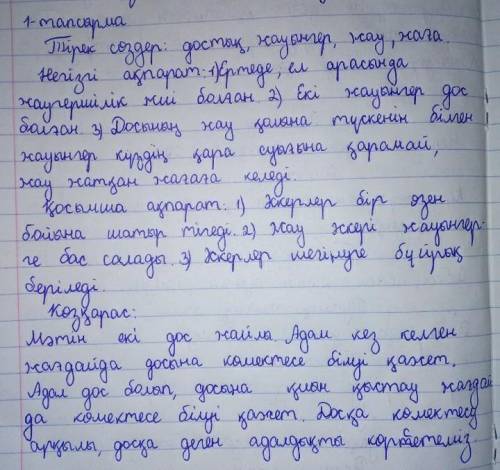 1-тапсырма
Тірек сөздер: достық, жауынгер, жау, жаға.
Негізгі ақпарат: 1) Ертеде, ел арасында
жаугершілік жиі болған. 2) Екі жауынгер дос
болған. 3) Досының жау қолына түскенін білген
жауынгер күздің қара суығына қарамай,
жау жатқан жағаға келеді.
Қосымша ақпарат: 1) Әкерлер бір өзен
бойына шатыр тігеді. 2) Жау әкері жауынгер-
ге бас салады. 3) Әкерлер шегінуге бұйрық
беріледі.
Көзқарас:
Мәтін екі дос жайлы. Адам кез келген
жағдайда досына көмектесе білуі қажет.
Адал дос болып, досына қиын қыстау жағдай
да көмектесе білуі қажет. Досқа көмектесу
арқылы, досқа деген адалдықты көрсетеміз